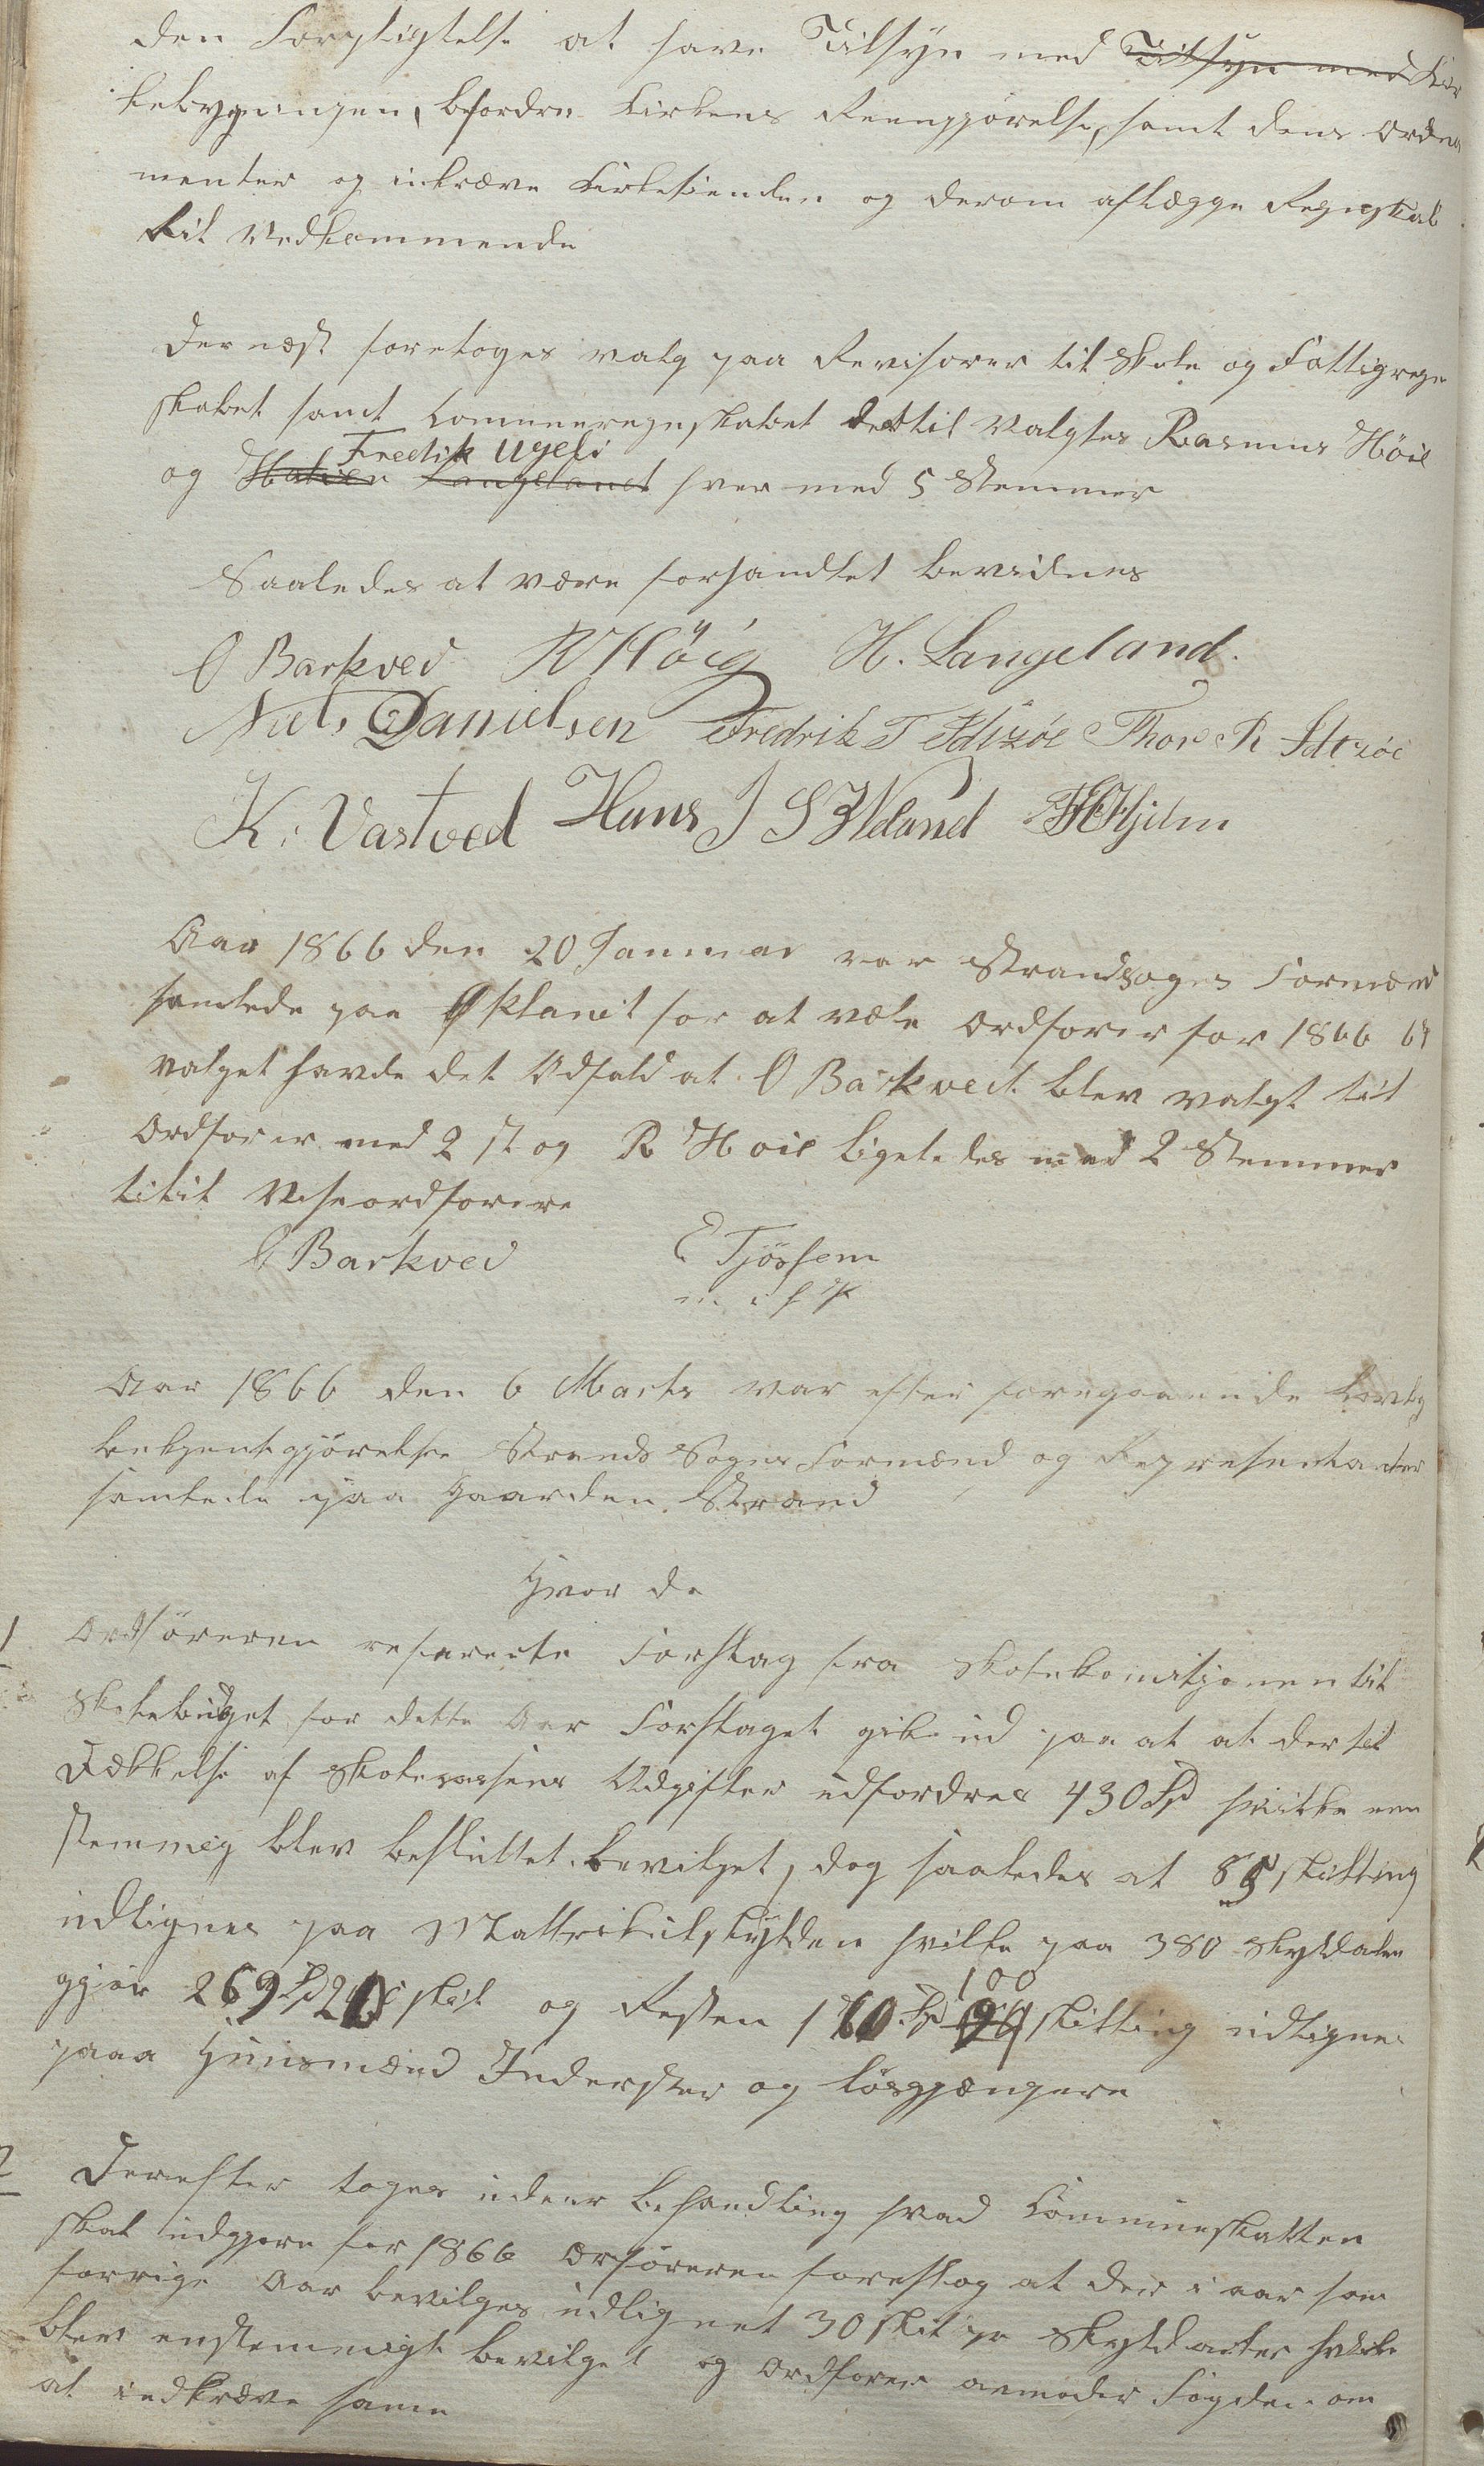 den Forpligtelse at have Tilsyn med Tilsyn med Kir
kebygningen, besørdre Kirkens Reengjørelse, samt dens Orden
menter og inkræve Kirketienden og derom aflægge Regnskab
til Vedkommende
Dernæst foretoges valg paa Revisorer til Skole og Fattigregn
skabet samt Communeregnskabet dertil Valgtes Rasmus Höie
Fredik Ugeli
og Langeland hver med 5 Stemmer
Saaledes at være forhandlet bevidnes
O Barkved R Höig H. Langeland.
Niels Danielsen Fredrik T Idtzöe Thore R Idtzöe
K. Vastved Hans J S Veland Hjelm
Aar 1866 den 20 Januar var Strandsogns Formænd
samlede paa for at vælge Ordforer for 1866 67
valget havde det Udfald at O Barkved blev valgt til
Ordforer med 2 st og R Hoie ligeledes med 2 Stemmer
til Viseordforere
O Barkved E Tjössem
Aar 1866 den 6 Marts var efter foregaaende lovlig
bekjentgjørelse Strands Sogns Formænd og Representanter
samlede paa Gaarden Strand
Hvor da
1 Ordføreren refererte Forslag fra Skolekomitsjonen til
Skolebudget for dette Aar Forslaget gik ud paa at at der til
Dækkelse af Skolecassens Udgifter udfordres 430 Spd hvilke een
stemmig blev besluttet bevilget, dog saaledes at 85 skilling
udlignes paa Mattrikulskylden hvilke paa 380 Skylddaler
gjør 269 Spd 20 skil og Resten 160 Spd 100 skilling udlignes
paaa Huusmænd Inderster og løsgjængere
2 Derefter toges under behandling hvad Communeskatten
skal udgjøre for 1866 Orføreren foreslog at der i aar som
forrige Aar bevilges udlignet 30 skil pr Skylddaler hvilke
blev enstemmigt bevilget og Ordforer anmoder Fogden om
at indkræve samme